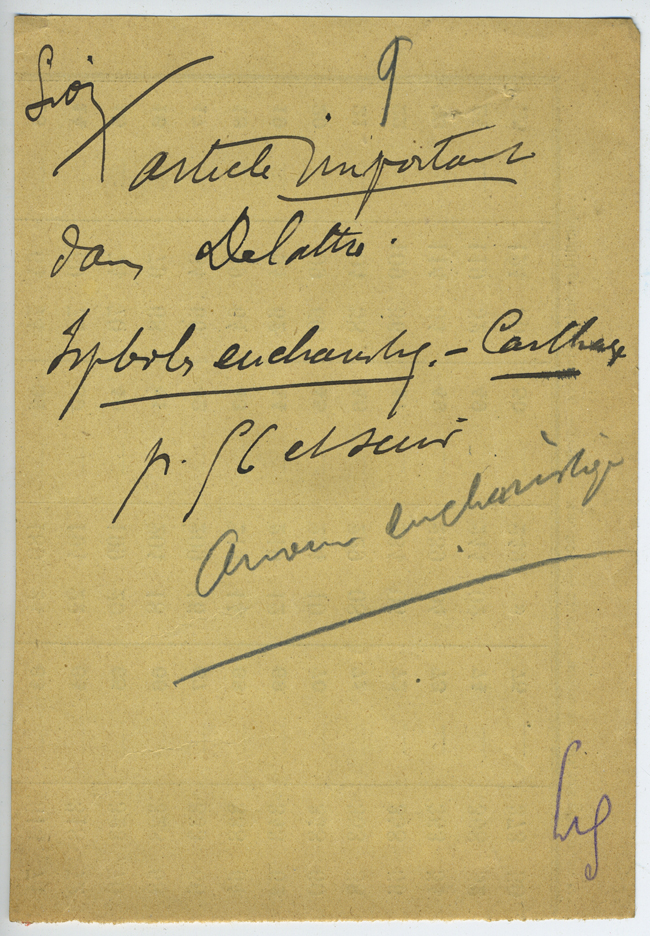 9
article important
dans Delattre.
Symboles eucharistiq. - Carthage
p. et suiv
eucharistiq